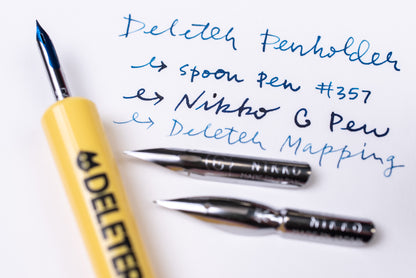 Deleter Penholder
↳ Spoon Pen #357
↳ Nikko G Pen
↳ Deleter Mapping
NIKKO
NIKKO
DELETER